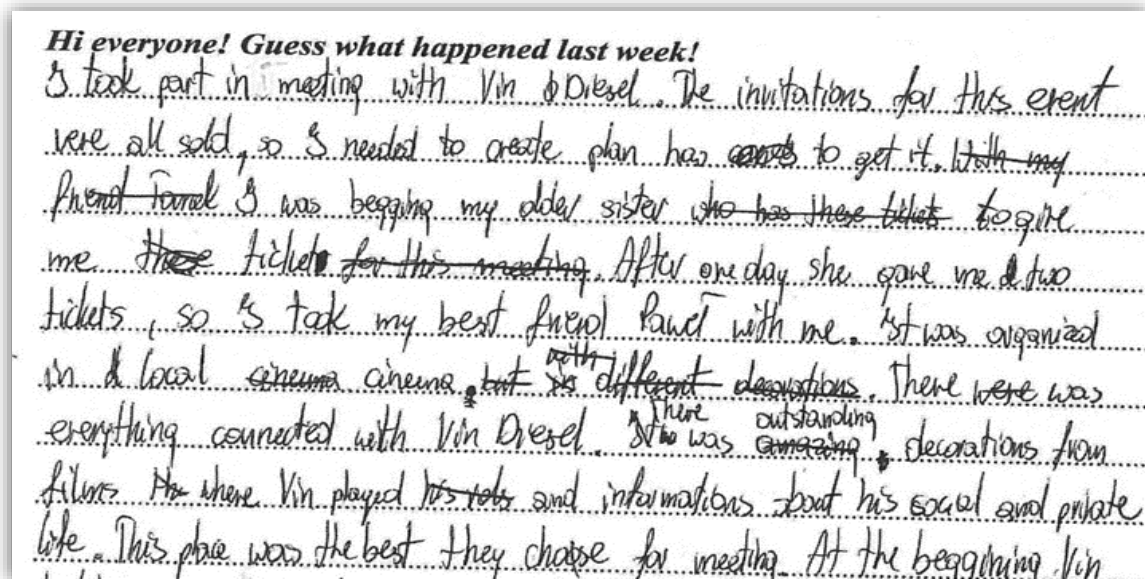 Hi everyone! Guess what happened last week!
I took part in meeting with Vin Diesel. The invitations for this event
were all sold, so I needed to create plan how to get it. With my
friend I was begging my older sister who has these tickets to give
me these ticket for this meeting. After one day she gave me two
tickets, so I took my best friend Paweł with me. It was organized
in local cinema cinema, but with in different decorations. There were was
everything connected with Vin Diesel. There was outstanding amazing decorations from
films where Vin played his role and informations about his social and private
life. This place was the best they choose for meeting. At the beggining Vin